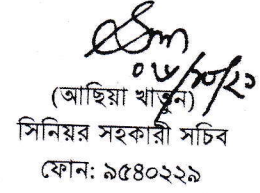 ০৬/১০/২১
(আছিয়া খাতুন)
সিনিয়র সহকারী সচিব
ফোন: ৯৫৪০২২৯